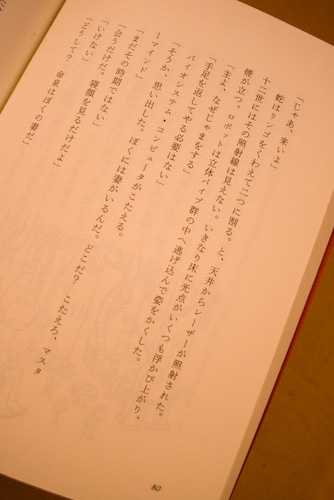 「じゃあ、来いよ」
蛇はリンゴをくわえて二つに割る。と、天井からレーザーが照射された。
十二世にはその照射線は見えない。いきなり床に光点がいくつも浮かび上がり、
煙が立つ。ロボットは立体パイプ群の中へ逃げ込んで姿をかくした。
「主よ、なぜじゃまをする」
「手足を返してやる必要はない」
バイオシステム・コンピュータがこたえる。
「そうか、思い出した。ぼくには妻がいるんだ。どこだ? こたえろ、マスタ
ーマインド」
「まだその時期ではない」
「会うだけだ。寝顔を見るだけだよ」
「いけない」
「どうして? 命泉はぼくの妻だ」
80